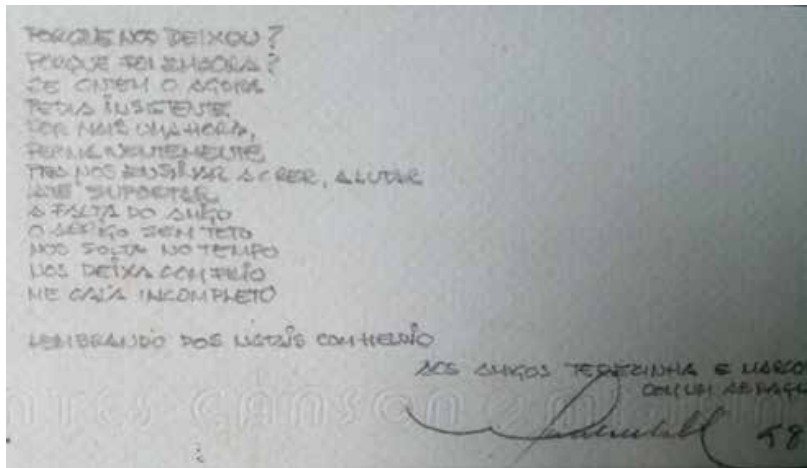 PORQUE NOS DEIXOU?
PORQUE FOI EMBORA?
SE ONTEM O AGORA
PEDIA INSISTENTE
POR MAIS UMA HORA,
PERMANENTEMENTE
PRA NOS ENSINAR A CRER, A LUTAR
ATÉ SUPORTAR
A FALTA DO AMIGO
O ABRIGO SEM TETO
NOS SOLTA NO TEMPO
NOS DEIXA COM FRIO
ME CALA INCOMPLETO
LEMBRANDO DOS NATAIS COM HELDIO
AOS AMIGOS TEREZINHA E MARCO
COM UM ABRAÇO
CANSON